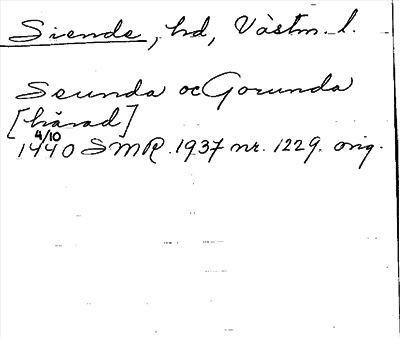 Siende, hd, Västm. l.
Seunda oc Gorunda
[härad]
4/10
1440 SMR. 1937 nr. 1229. orig.